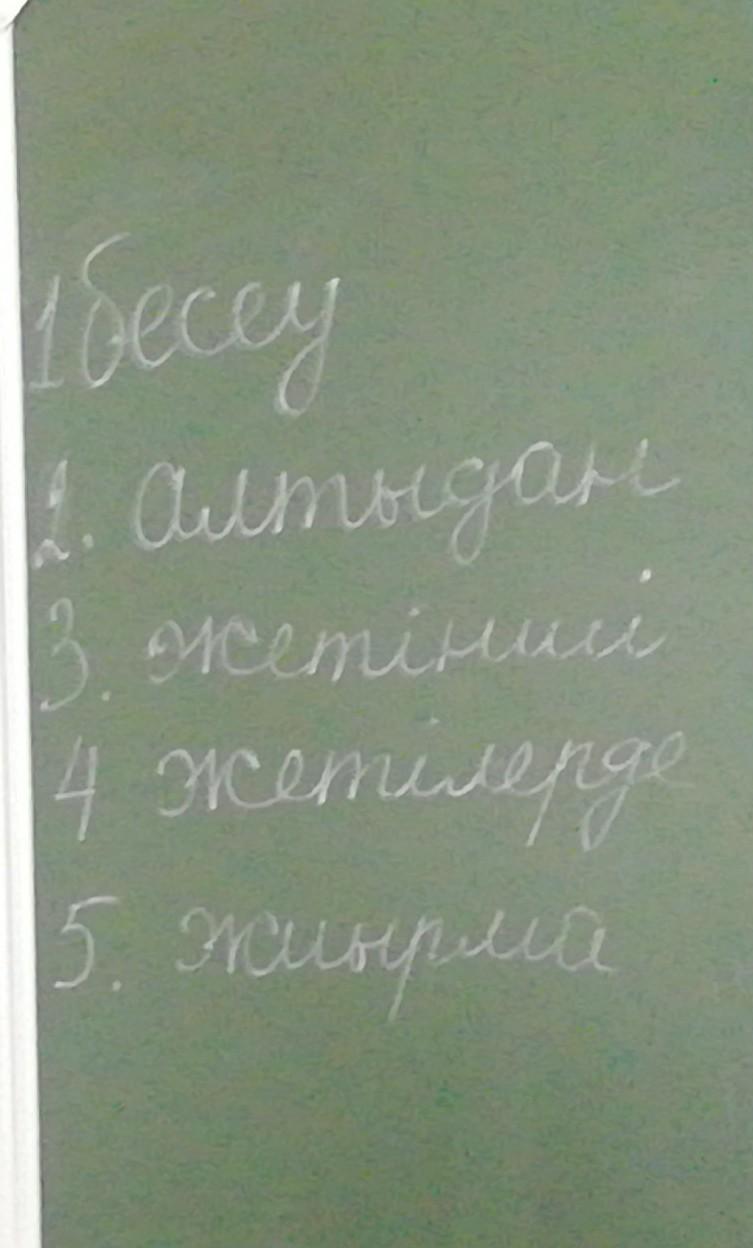 1 бесеу
2. алтыдан
3. жетінші
4 жетілерде
5. жиырма